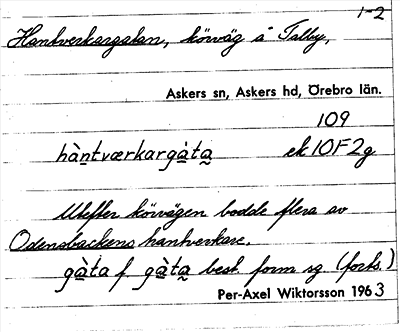 1-2
Hantverkargatan, körväg å Talby,
Askers sn, Askers hd, Örebro län.
109
hàntværkargàta ek 10F2g
Utefter körvägen bodde flera av
Odensbackens hantverkare.
gàta f. gàta best form sg (forts.)
Per-Axel Wiktorsson 1963